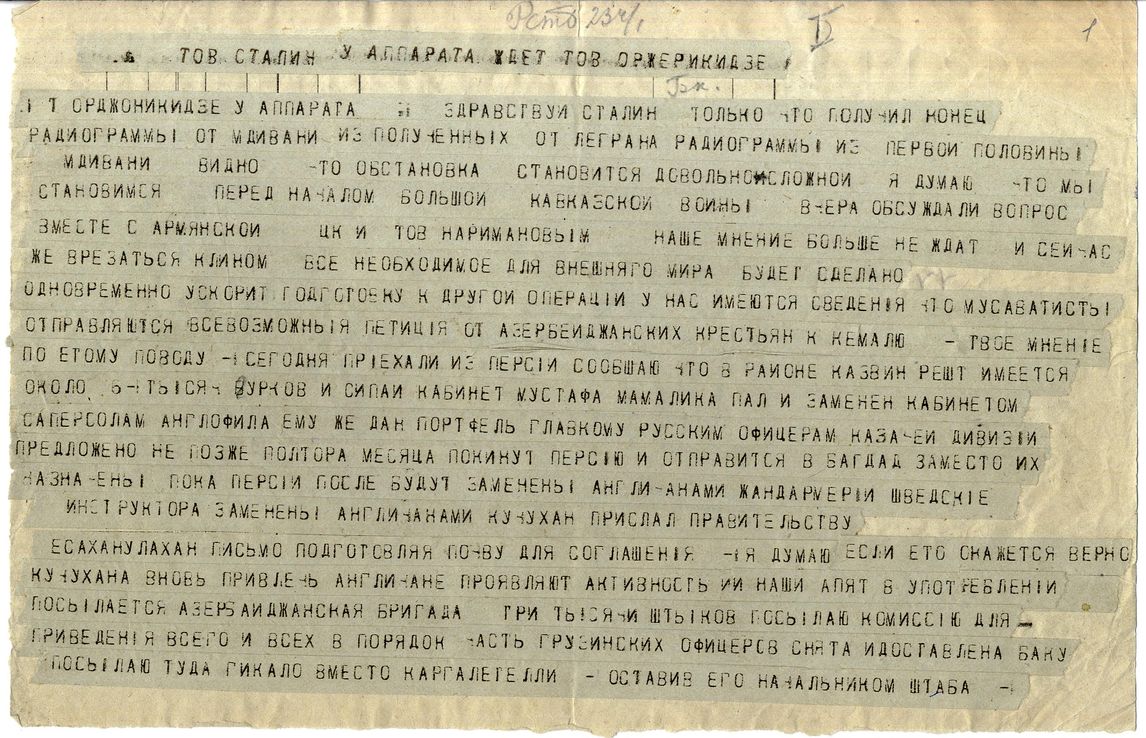 1
ТОВ СТАЛИН У АППАРАТА ЖДЕТ ТОВ ОРЖЕРИКИДЗЕ
Т ОРДЖОНИКИДЗЕ У АППАРАТА ЗДРАВСТВУИ СТАЛИН ТОЛЬКО ЧТО ПОЛУЧИЛ КОНЕЦ
РАДИОГРАММЫ ОТ МДИВАНИ ИЗ ПОЛУЧЕННЫХ ОТ ЛЕГРАНА РАДИОГРАММЫ ИЗ ПЕРВОЙ ПОЛОВИНЫ
МДИВАНИ ВИДНО ЧТО ОБСТАНОВКА СТАНОВИТСЯ ДОВОЛЬНО СЛОЖНОЙ Я ДУМАЮ ЧТО МЫ
СТАНОВИМСЯ ПЕРЕД НАЧАЛОМ БОЛЬШОЙ КАВКАЗСКОЙ ВОИНЫ ВЧЕРА ОБСУЖДАЛИ ВОПРОС
ВМЕСТЕ С АРМЯНСКОЙ ЦК И ТОВ НАРИМАНОВЫМ НАШЕ МНЕНИЕ БОЛЬШЕ НЕ ЖДАТ И СЕИЧАС
ЖЕ ВРЕЗАТЬСЯ КЛИНОМ ВСЕ НЕОБХОДИМОЕ ДЛЯ ВНЕШНЯГО МИРА БУДЕТ СДЕЛАНО
ОДНОВРЕМЕННО УСКОРИТ ПОДГОТОВКУ К ДРУГОЙ ОПЕРАЦІИ У НАС ИМЕЮТСЯ СВЕДЕНІЯ ЧТО МУСАВАТИСТЫ
ОТПРАВЛЯЮТСЯ ВСЕВОЗМОЖНЫЯ ПЕТИЦІЯ ОТ АЗЕРБЕИДЖАНСКИХ КРЕСТЬЯН К КЕМАЛЮ - ТВОЕ МНЕНІЕ
ПО ЕТОМУ ПОВОДУ - СЕГОДНЯ ПРІЕХАЛИ ИЗ ПЕРСІИ СООБШАЮ ЧТО В РАЙОНЕ КАЗВИН РЕШТ ИМЕЕТСЯ
ОКОЛО 6 ТЫСЯЧ ГУРКОВ И СИПАИ КАБИНЕТ МУСТАФА МАМАЛИКА ПАЛ И ЗАМЕНЕН КАБИНЕТОМ
САПЕРСОЛАМ АНГЛОФИЛА ЕМУ ЖЕ ДАН ПОРТФЕЛЬ ГЛАВКОМУ РУССКИМ ОФИЦЕРАМ КАЗАЧЕЙ ДИВИЗІИ
ПРЕДЛОЖЕНО НЕ ПОЗЖЕ ПОЛТОРА МЕСЯЦА ПОКИНУТ ПЕРСІЮ И ОТПРАВИТСЯ В БАГДАД ЗАМЕСТО ИХ
НАЗНАЧЕНЫ ПОКА ПЕРСІИ ПОСЛЕ БУДУТ ЗАМЕНЕНЫ АНГЛИЧАНАМИ ЖАНДАРМЕРІИ ШВЕДСКІЕ
ИНСТРУКТОРА ЗАМЕНЕНЫ АНГЛИЧАНАМИ КУЧУХАН ПРИСЛАЛ ПРАВИТЕЛЬСТВУ
ЕСАХАНУЛАХАН ПИСЬМО ПОДГОТОВЛЯЯ ПОЧВУ ДЛЯ СОГЛАШЕНІЯ - Я ДУМАЮ ЕСЛИ ЕТО СКАЖЕТСЯ ВЕРНО
КУЧУХАНА ВНОВЬ ПРИВЛЕЧЬ АНГЛИЧАНЕ ПРОЯВЛЯЮТ АКТИВНОСТЬ ИИ НАШИ АПЯТ В УПОТРЕБЛЕНІИ
ПОСЫЛАЕТСЯ АЗЕРБАИДЖАНСКАЯ БРИГАДА ТРИ ТЫСЯЧИ ШТЫКОВ ПОСЫЛАЮ КОМИССІЮ ДЛЯ
ПРИВЕДЕНІЯ ВСЕГО И ВСЕХ В ПОРЯДОК ЧАСТЬ ГРУЗИНСКИХ ОФИЦЕРОВ СНЯТА И ДОСТАВЛЕНА БАКУ
ПОСЫЛАЮ ТУДА ГИКАЛО ВМЕСТО КАРГАЛЕТЕЛЛИ - ОСТАВИВ ЕГО НАЧАЛЬНИКОМ ШТАБА -